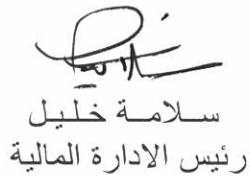 سلامة خليل
رئيس الادارة المالية